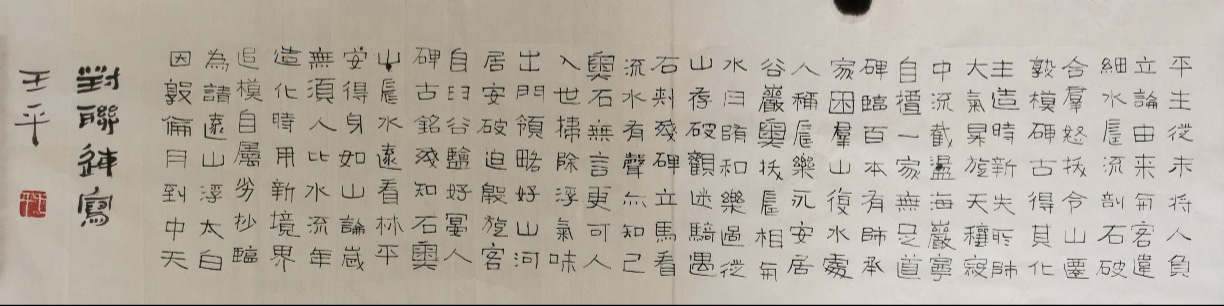 平生從未將人負
立論由來氣客違
細水長流剖石破
合羣怒拔令山遷
敦模碑古得其化
主造時新失所師
大氣杲旋天穰寂
中流截盪海巖寧
自擅一家無足道
碑臨百本有師承
家困羣山復水處
人稱長樂永安居
谷巖奧拔長相氣
水日隋和樂過從
山存破觀迷騎遇
石刺殘碑立馬看
流水有聲亦知己
奧石無言更可人
入世掃除浮氣味
出門領略好山河
居安破迫嚴旋客
自日谷豔好宴人
碑古銘殘知石奧
山長水遠看林平
安得身如山論歲
無須人比水流年
造化時用新境界
追模自屬劣抄臨
為請遠山浮太白
因敦倫月到中天
對聯練寫
王平